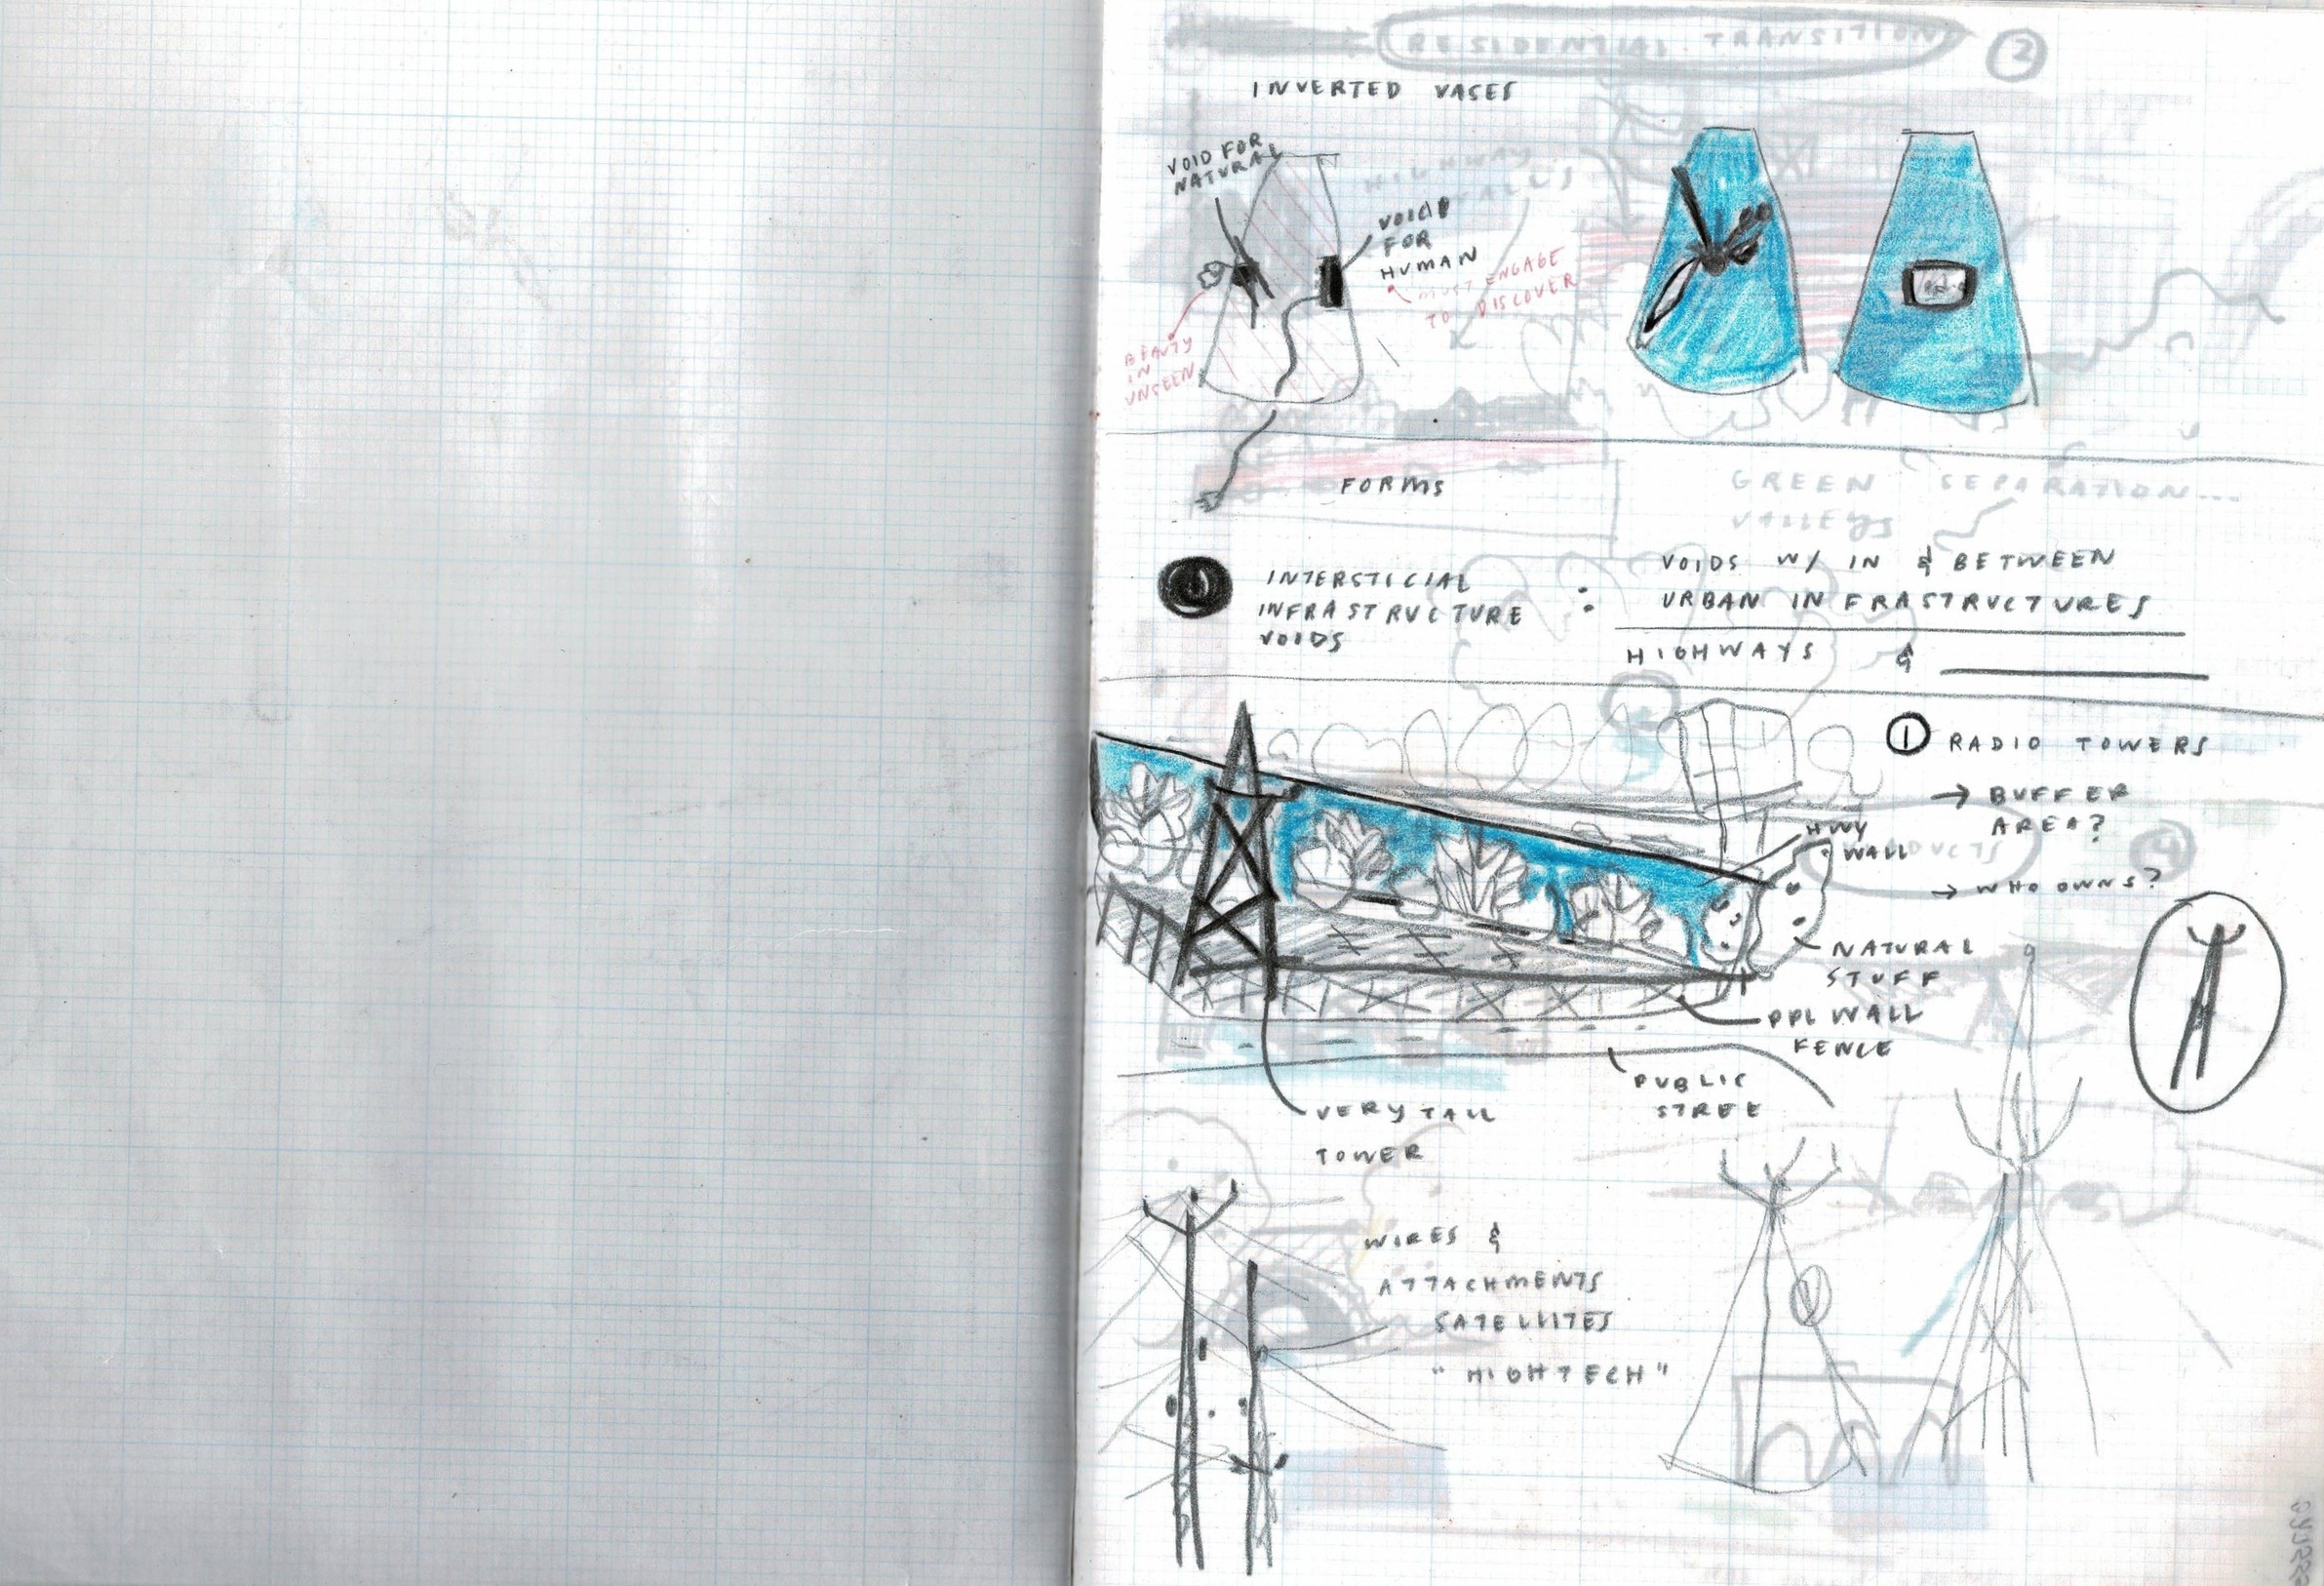 RESIDENTIAL TRANSITION
2
INVERTED VASES
VOID FOR
NATURAL
HIGHWAY
WALLS
VOID
FOR
HUMAN
MUST ENGAGE
TO DISCOVER
BEAUTY
IN
UNSEEN
FORMS
GREEN SEPARATION...
VALLEYS
INTERSTICIAL
INFRASTRUCTURE
VOIDS
:
VOIDS W/ IN & BETWEEN
URBAN INFRASTRUCTURES
HIGHWAYS &
1 RADIO TOWERS
→ BUFFER
AREA?
HWY
WALL
→ WHO OWNS?
4
NATURAL
STUFF
PPL WALL
FENCE
PUBLIC
STREE
VERY TALL
TOWER
WIRES &
ATTACHMENTS
SATELLITES
"HIGHTECH"